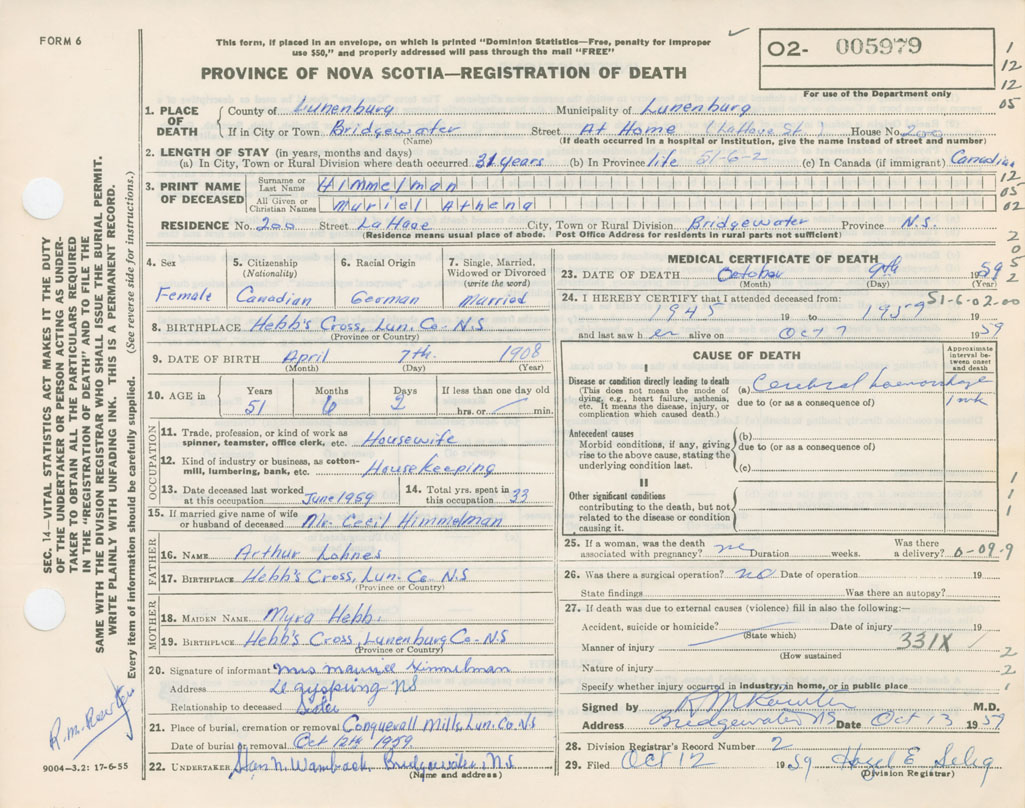 FORM 6
This form, if placed in an envelope, on which is printed "Dominion Statistics—Free, penalty for improper
use $50," and properly addressed will pass through the mail "FREE"
PROVINCE OF NOVA SCOTIA—REGISTRATION OF DEATH
O2- 005979
For use of the Department only
1
12
12
05
1. PLACE OF DEATH County of Lunenburg Municipality of Lunenburg
If in City or Town Bridgewater Street At Home (LaHave St.) House No. 200
(Name) (If death occurred in a hospital or institution, give the name instead of street and number)
2. LENGTH OF STAY (in years, months and days)
(a) In City, Town or Rural Division where death occurred 31 years (b) In Province life 51-6-2 (c) In Canada (if immigrant) Canadian
3. PRINT NAME OF DECEASED Surname or Last Name Himmelman
All Given or Christian Names Muriel Athena
12
05
02
RESIDENCE No. 200 Street LaHave City, Town or Rural Division Bridgewater Province N.S.
(Residence means usual place of abode. Post Office Address for residents in rural parts not sufficient)
2
0
5
2
SEC. 14—VITAL STATISTICS ACT MAKES IT THE DUTY
OF THE UNDERTAKER OR PERSON ACTING AS UNDER-
TAKER TO OBTAIN ALL THE PARTICULARS REQUIRED
IN THE "REGISTRATION OF DEATH" AND TO FILE THE
SAME WITH THE DIVISION REGISTRAR WHO SHALL ISSUE THE BURIAL PERMIT.
WRITE PLAINLY WITH UNFADING INK. THIS IS A PERMANENT RECORD.
Every item of information should be carefully supplied. (See reverse side for instructions.)
4. Sex 5. Citizenship (Nationality) 6. Racial Origin 7. Single, Married, Widowed or Divorced (write the word)
Female Canadian German Married
8. BIRTHPLACE Hebb's Cross, Lun. Co. N.S
(Province or Country)
9. DATE OF BIRTH April 7th. 1908
(Month) (Day) (Year)
10. AGE in Years Months Days If less than one day old
51 6 2 hrs. or min.
OCCUPATION
11. Trade, profession, or kind of work as spinner, teamster, office clerk, etc. Housewife
12. Kind of industry or business, as cotton-mill, lumbering, bank, etc. Housekeeping
13. Date deceased last worked at this occupation June 1959 14. Total yrs. spent in this occupation 33
15. If married give name of wife or husband of deceased Mr. Cecil Himmelman
FATHER
16. NAME Arthur Lohnes
17. BIRTHPLACE Hebb's Cross, Lun. Co. N.S
(Province or Country)
MOTHER
18. MAIDEN NAME Myra Hebb.
19. BIRTHPLACE Hebb's Cross, Lunenburg Co. N.S
(Province or Country)
20. Signature of informant Mrs Himmelman
Address NS
Relationship to deceased Sister
21. Place of burial, cremation or removal Conquerall Mills, Lun. Co. N.S
Date of burial or removal Oct 12th 1959
22. UNDERTAKER N. Wambach, Bridgewater, N.S
(Name and address)
9004-3.2: 17-6-55
MEDICAL CERTIFICATE OF DEATH
23. DATE OF DEATH October 9th 1959
(Month) (Day) (Year)
24. I HEREBY CERTIFY that I attended deceased from: 51-6-02-00
1945 19 to 1959 19
and last saw her alive on Oct 7 1959
CAUSE OF DEATH
Approximate interval between onset and death
I
Disease or condition directly leading to death (a) Cerebral haemorrhage
(This does not mean the mode of dying, e.g., heart failure, asthenia, etc. It means the disease, injury, or complication which caused death.) due to (or as a consequence of) 1 wk
Antecedent causes (b)
Morbid conditions, if any, giving rise to the above cause, stating the underlying condition last. due to (or as a consequence of)
(c)
II
Other significant conditions
contributing to the death, but not related to the disease or condition causing it.
1
1
1
25. If a woman, was the death associated with pregnancy? no Duration weeks. Was there a delivery? 0-09-9
26. Was there a surgical operation? no Date of operation 19
State findings Was there an autopsy?
27. If death was due to external causes (violence) fill in also the following:—
Accident, suicide or homicide? Date of injury 19
(State which)
Manner of injury 331X
(How sustained)
Nature of injury
Specify whether injury occurred in industry, in home, or in public place
2
2
1
Signed by M.D.
Address Bridgewater NS Date Oct 13 1959
28. Division Registrar's Record Number 2
29. Filed Oct 12 1959 Hazel E. Selig
(Division Registrar)